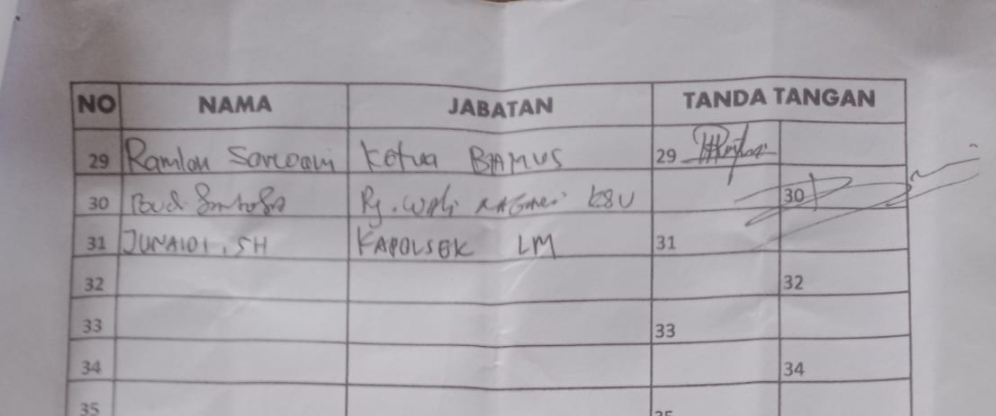 NO NAMA JABATAN TANDA TANGAN
29 Ramlan Sarwani Ketua BAMUS 29
30 Pj. Wali NAGARI KSU 30
31 JUNAIDI, SH KAPOLSEK LM 31
32 32
33 33
34 34
35 35